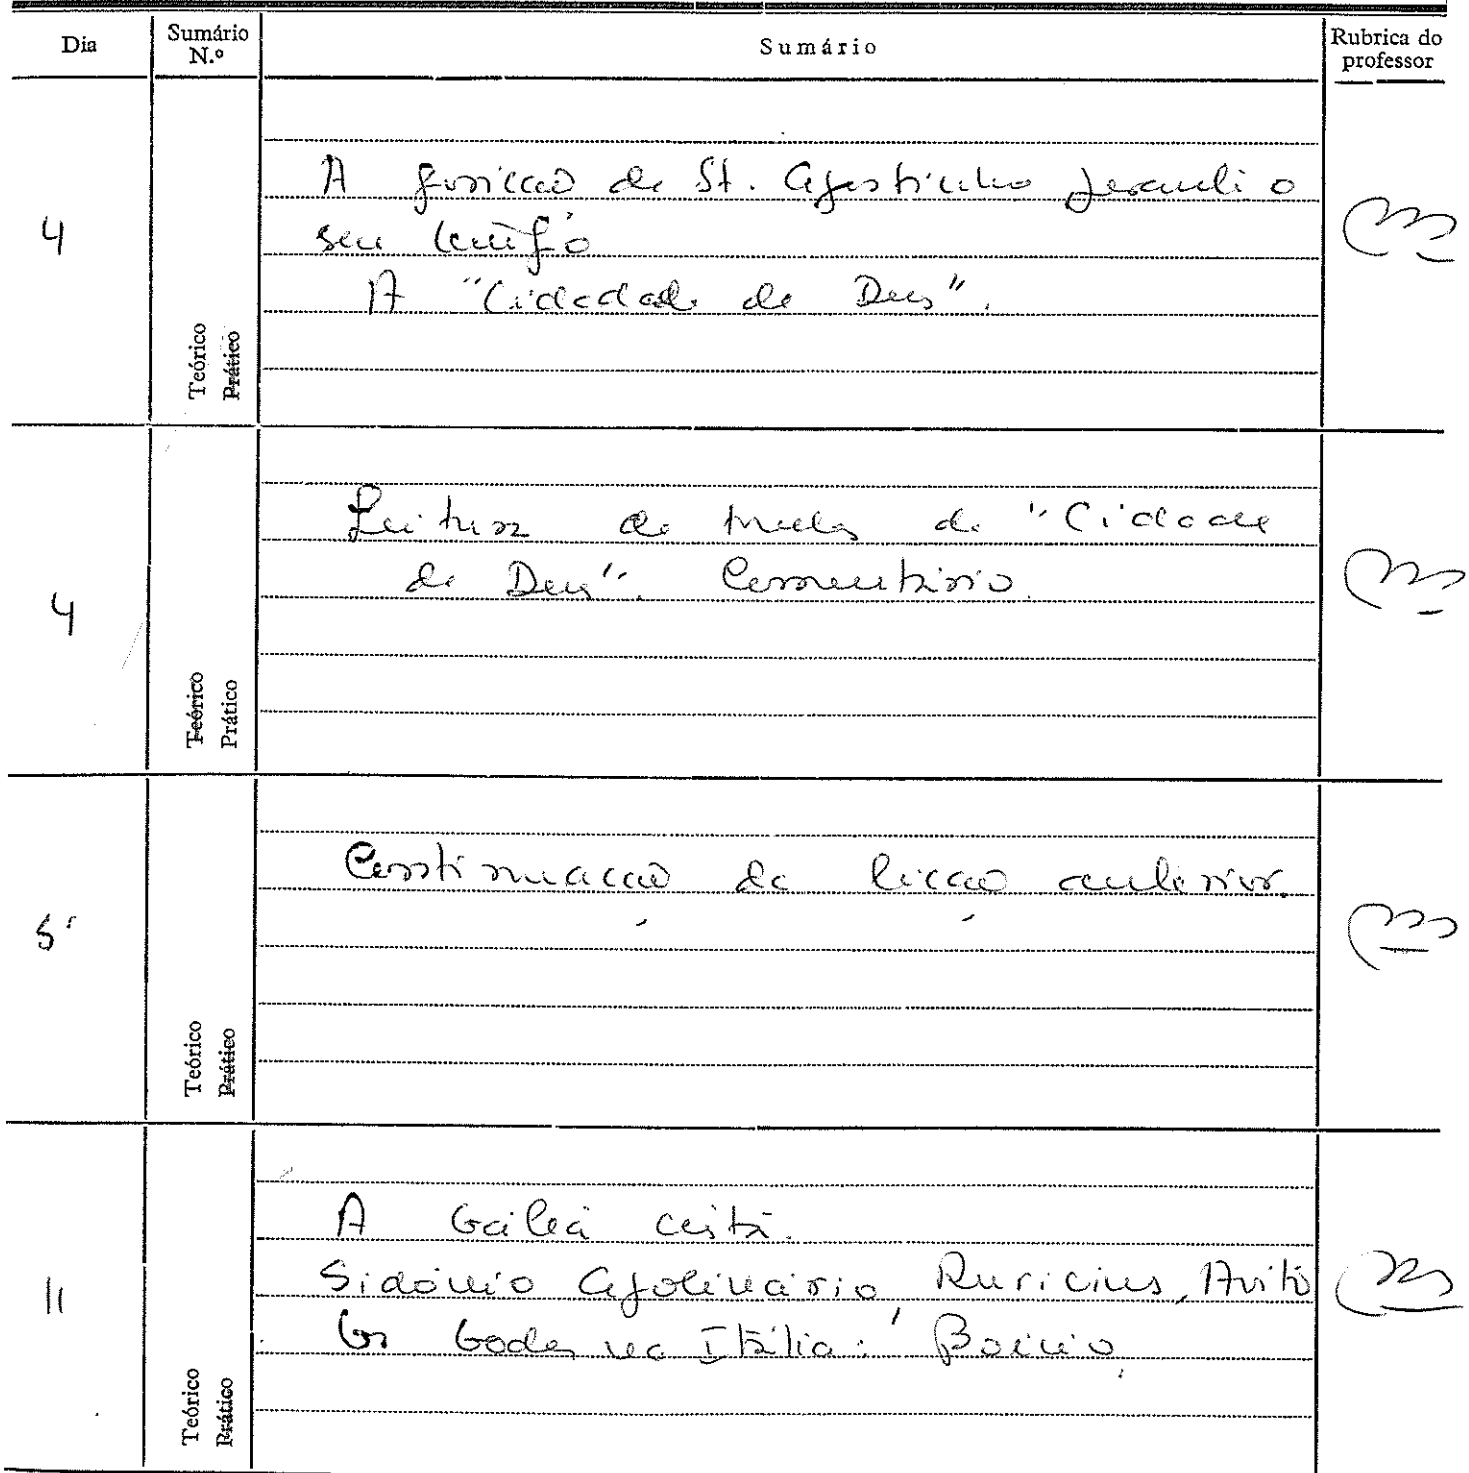 Dia
Sumário N.º
Sumário
Rubrica do professor
4
Teórico
Prático
A posição de St. Agostinho perante o
seu tempo
A "Cidadade de Deus".
4
Teórico
Prático
Leitura de trechos da "Cidade
de Deus". Comentário.
5
Teórico
Prático
Continuação da lição anterior.
11
Teórico
Prático
A Gália cristã.
Sidónio Apolinário, Ruricius, Avito
Os Godos na Itália: Boécio.